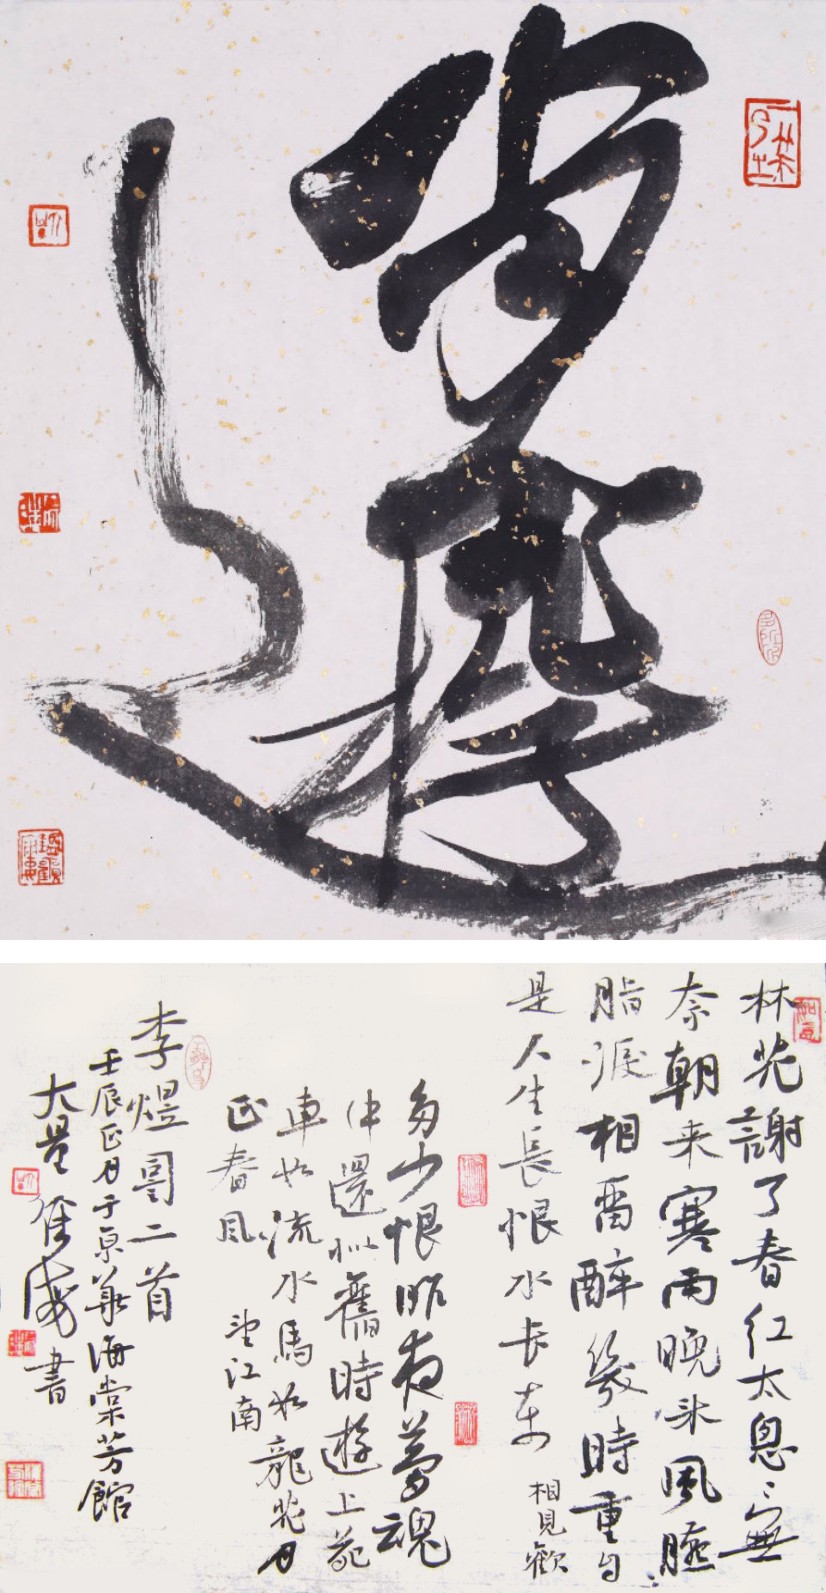 林花謝了春红太怱〻無
奈朝来寒雨晚来風臙
脂淚相留醉幾時重自
是人生長恨水长東 相見歡
多少恨昨夜夢魂
中還似舊時遊上苑
車如流水馬如龍花月
正春風 望江南
李煜詞二首
壬辰正月于京華海棠芳館
書